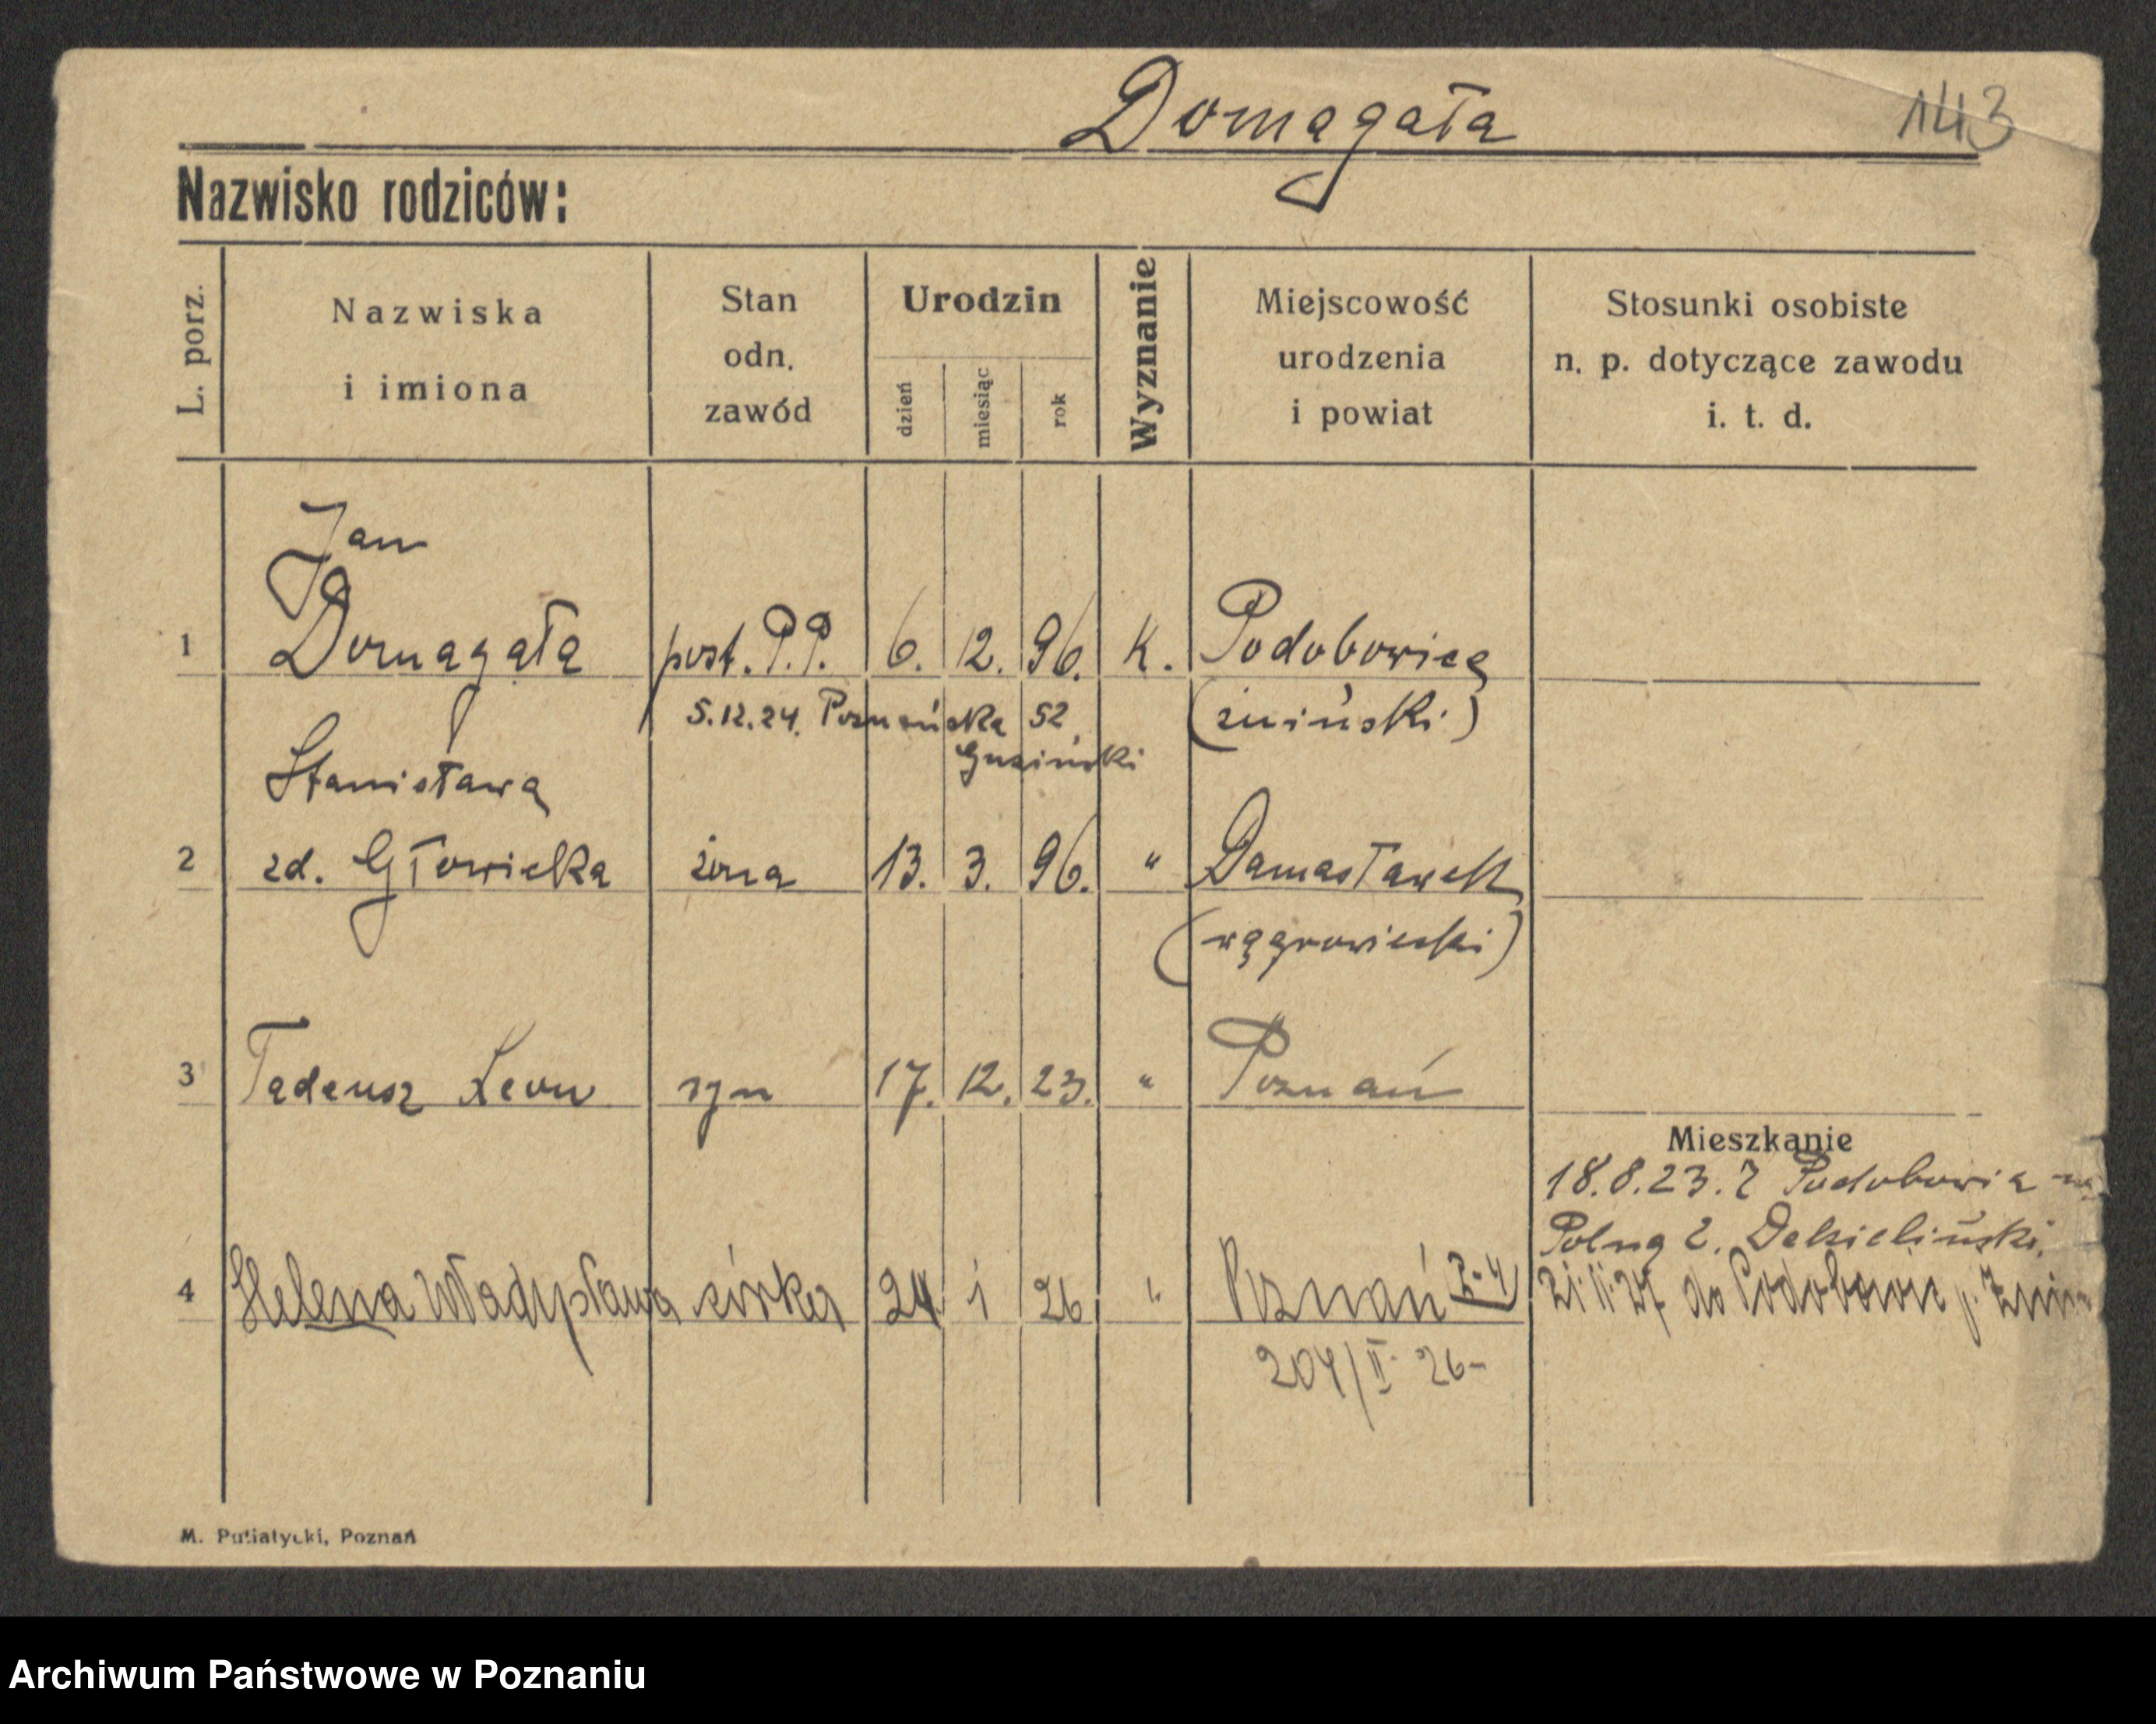 Domagała 143
Nazwisko rodziców:
L. porz.
Nazwiska
i imiona
Stan
odn.
zawód
Urodzin
dzień
miesiąc
rok
Wyznanie
Miejscowość
urodzenia
i powiat
Stosunki osobiste
n. p. dotyczące zawodu
i. t. d.
Jan
1 Domagała post. P.P. 6. 12. 96. K. Podobowice
5.12.24. Poznańska 52 (żniński)
Stanisława
2 zd. Głowicka żona 13. 3. 96. " Damasławek
(wągrowiecki)
3 Tadeusz Leon syn 17. 12. 23. " Poznań
Mieszkanie
18.8.23. z Podobowic
Polna 2.
4 Helena Władysława córka 24 i 26 " Poznań
21.11.27 do Podobowic p.
204/II 26-
M. Putiatycki, Poznań
Archiwum Państwowe w Poznaniu